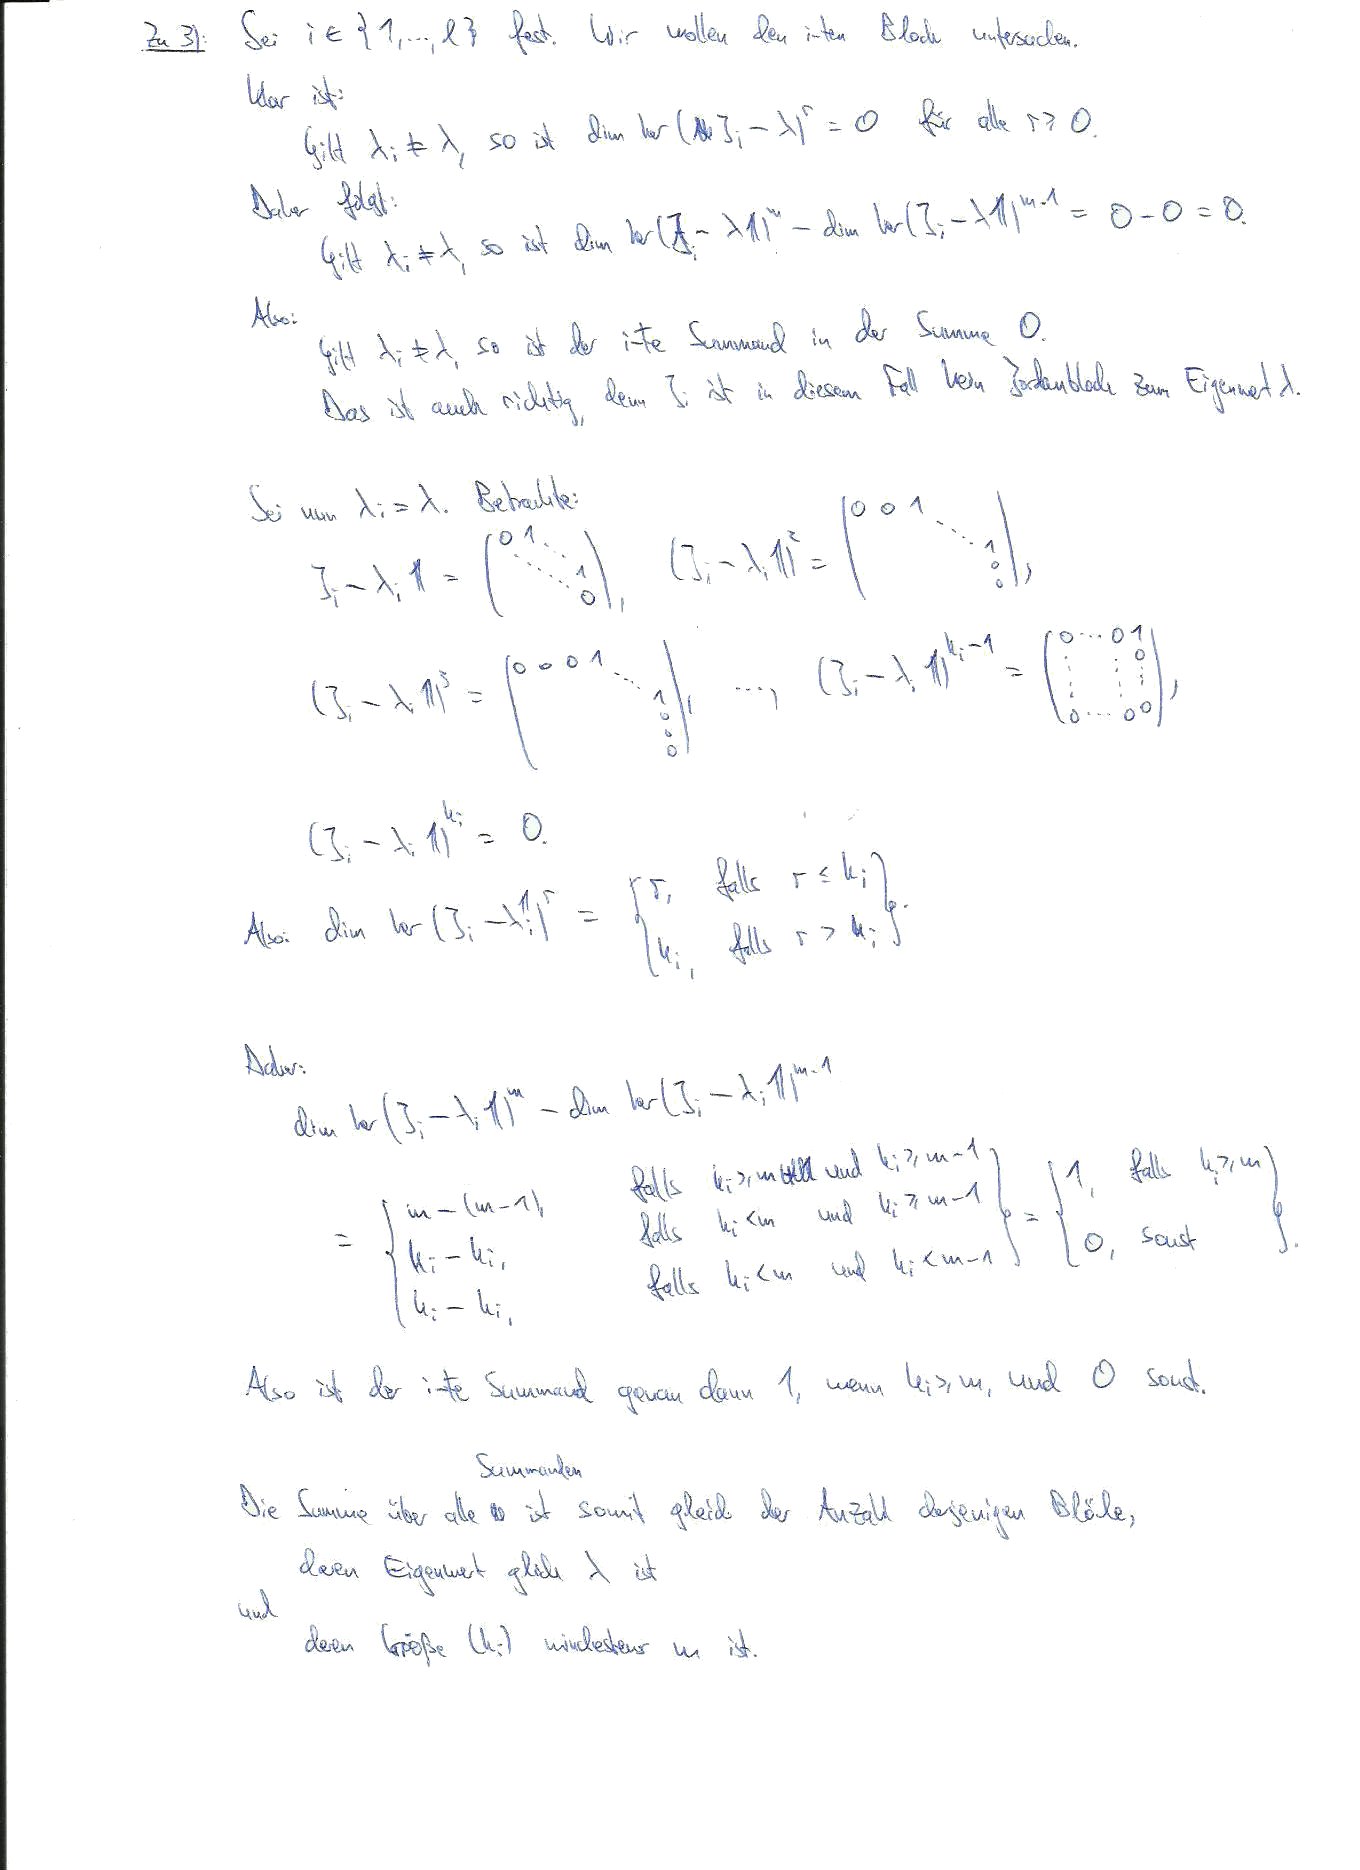 Zu 3): Sei i ∈ {1,...,l} fest. Wir wollen den i-ten Block untersuchen.
Klar ist:
Gilt λᵢ ≠ λ, so ist dim ker (Jᵢ - λ)ʳ = 0 für alle r ≥ 0.
Daher folgt:
Gilt λᵢ ≠ λ, so ist dim ker (Jᵢ - λ𝟙)ᵐ - dim ker (Jᵢ - λ𝟙)ᵐ⁻¹ = 0 - 0 = 0.
Also:
Gilt λᵢ ≠ λ, so ist der i-te Summand in der Summe 0.
Das ist auch richtig, denn Jᵢ ist in diesem Fall kein Jordanblock zum Eigenwert λ.
Sei nun λᵢ = λ. Betrachte:
Jᵢ - λᵢ𝟙 = (0 1 ... 1 0), (Jᵢ - λᵢ𝟙)² = (0 0 1 ... 1 0 0),
(Jᵢ - λᵢ𝟙)³ = (0 0 0 1 ... 1 0 0 0), ..., (Jᵢ - λᵢ𝟙)^(kᵢ-1) = (0 ... 0 1 0 ... 0 ... 0 0),
(Jᵢ - λᵢ𝟙)^(kᵢ) = 0.
Also: dim ker (Jᵢ - λᵢ𝟙)ʳ = { r, falls r ≤ kᵢ
kᵢ, falls r > kᵢ }.
Daher:
dim ker (Jᵢ - λᵢ𝟙)ᵐ - dim ker (Jᵢ - λᵢ𝟙)ᵐ⁻¹
= { m - (m-1), falls kᵢ ≥ m und kᵢ ≥ m-1
kᵢ - kᵢ, falls kᵢ < m und kᵢ ≥ m-1
kᵢ - kᵢ, falls kᵢ < m und kᵢ < m-1 } = { 1, falls kᵢ ≥ m
0, sonst }.
Also ist der i-te Summand genau dann 1, wenn kᵢ ≥ m, und 0 sonst.
Die Summe über alle Summanden ist somit gleich der Anzahl derjenigen Blöcke,
deren Eigenwert gleich λ ist
und
deren Größe (kᵢ) mindestens m ist.